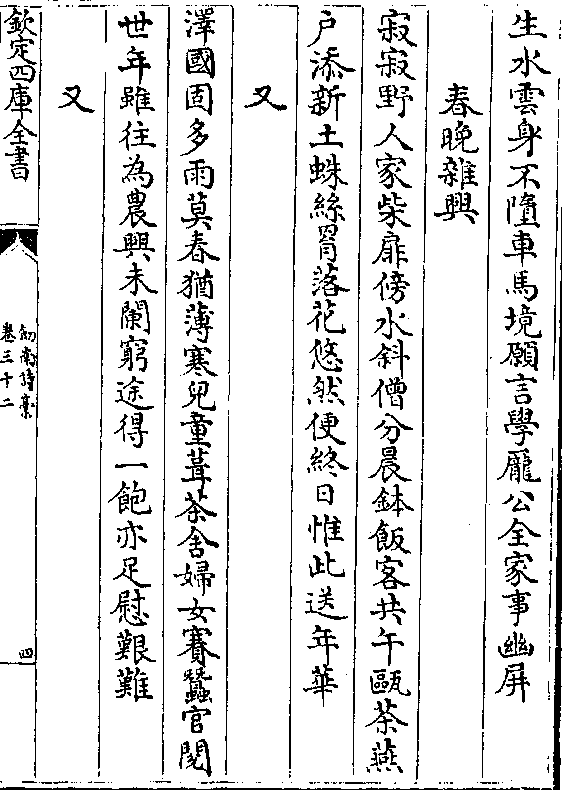 生水雲身不墮車馬境願言學龎公全家事幽屏
春晚雜興
寂寂野人家柴扉傍水斜僧分晨鉢飯客共午甌茶燕
户添新土蛛絲罥落花悠然便終日惟此送年華
又
澤國固多雨莫春猶薄寒兒童葺茶舍婦女賽蠶官閱
世年雖往為農興未闌窮途得一飽亦足慰艱難
又
欽定四庫全書
劒南詩藁
卷三十二
四